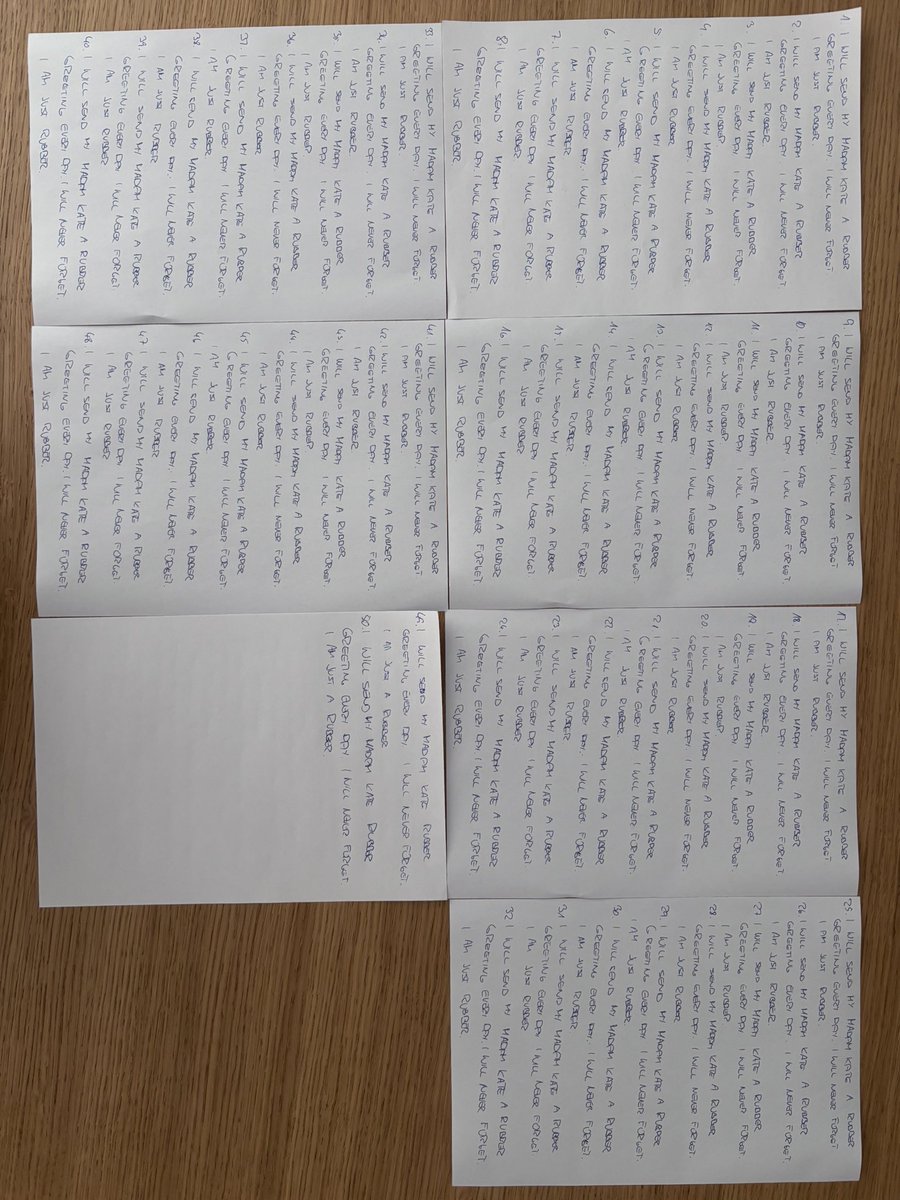 1. I WILL SEND MY MADAM KATE A RUBBER
GREETING EVERY DAY. I WILL NEVER FORGET
I AM JUST RUBBER
2. I WILL SEND MY MADAM KATE A RUBBER
GREETING EVERY DAY. I WILL NEVER FORGET.
I AM JUST RUBBER.
3. I WILL SEND MY MADAM KATE A RUBBER
GREETING EVERY DAY I WILL NEVER FORGET.
I AM JUST RUBBER
4. I WILL SEND MY MADAM KATE A RUBBER
GREETING EVERY DAY. I WILL NEVER FORGET.
I AM JUST RUBBER
5. I WILL SEND MY MADAM KATE A RUBBER
GREETING EVERY DAY I WILL NEVER FORGET.
I AM JUST RUBBER
6. I WILL SEND MY MADAM KATE A RUBBER
GREETING EVERY DAY. I WILL NEVER FORGET.
I AM JUST RUBBER
7. I WILL SEND MY MADAM KATE A RUBBER
GREETING EVERY DAY I WILL NEVER FORGET
I AM JUST RUBBER
8. I WILL SEND MY MADAM KATE A RUBBER
GREETING EVERY DAY. I WILL NEVER FORGET.
I AM JUST RUBBER
9. I WILL SEND MY MADAM KATE A RUBBER
GREETING EVERY DAY. I WILL NEVER FORGET
I AM JUST RUBBER
10. I WILL SEND MY MADAM KATE A RUBBER
GREETING EVERY DAY. I WILL NEVER FORGET.
I AM JUST RUBBER.
11. I WILL SEND MY MADAM KATE A RUBBER
GREETING EVERY DAY I WILL NEVER FORGET.
I AM JUST RUBBER
12. I WILL SEND MY MADAM KATE A RUBBER
GREETING EVERY DAY. I WILL NEVER FORGET.
I AM JUST RUBBER
13. I WILL SEND MY MADAM KATE A RUBBER
GREETING EVERY DAY I WILL NEVER FORGET.
I AM JUST RUBBER
14. I WILL SEND MY MADAM KATE A RUBBER
GREETING EVERY DAY. I WILL NEVER FORGET.
I AM JUST RUBBER
I WILL SEND MY MADAM KATE A RUBBER
GREETING EVERY DAY I WILL NEVER FORGET
I AM JUST RUBBER
16. I WILL SEND MY MADAM KATE A RUBBER
GREETING EVERY DAY. I WILL NEVER FORGET.
I AM JUST RUBBER
17. I WILL SEND MY MADAM KATE A RUBBER
GREETING EVERY DAY. I WILL NEVER FORGET
I AM JUST RUBBER
18. I WILL SEND MY MADAM KATE A RUBBER
GREETING EVERY DAY. I WILL NEVER FORGET.
I AM JUST RUBBER.
19. I WILL SEND MY MADAM KATE A RUBBER
GREETING EVERY DAY I WILL NEVER FORGET.
I AM JUST RUBBER
20. I WILL SEND MY MADAM KATE A RUBBER
GREETING EVERY DAY. I WILL NEVER FORGET.
I AM JUST RUBBER
21. I WILL SEND MY MADAM KATE A RUBBER
GREETING EVERY DAY I WILL NEVER FORGET.
I AM JUST RUBBER
22. I WILL SEND MY MADAM KATE A RUBBER
GREETING EVERY DAY. I WILL NEVER FORGET.
I AM JUST RUBBER
23. I WILL SEND MY MADAM KATE A RUBBER
GREETING EVERY DAY I WILL NEVER FORGET
I AM JUST RUBBER
24. I WILL SEND MY MADAM KATE A RUBBER
GREETING EVERY DAY. I WILL NEVER FORGET.
I AM JUST RUBBER
25. I WILL SEND MY MADAM KATE A RUBBER
GREETING EVERY DAY. I WILL NEVER FORGET
I AM JUST RUBBER
26. I WILL SEND MY MADAM KATE A RUBBER
GREETING EVERY DAY. I WILL NEVER FORGET.
I AM JUST RUBBER.
27. I WILL SEND MY MADAM KATE A RUBBER
GREETING EVERY DAY I WILL NEVER FORGET.
I AM JUST RUBBER
28. I WILL SEND MY MADAM KATE A RUBBER
GREETING EVERY DAY. I WILL NEVER FORGET.
I AM JUST RUBBER
29. I WILL SEND MY MADAM KATE A RUBBER
GREETING EVERY DAY I WILL NEVER FORGET.
I AM JUST RUBBER
30. I WILL SEND MY MADAM KATE A RUBBER
GREETING EVERY DAY. I WILL NEVER FORGET.
I AM JUST RUBBER
31. I WILL SEND MY MADAM KATE A RUBBER
GREETING EVERY DAY I WILL NEVER FORGET
I AM JUST RUBBER
32. I WILL SEND MY MADAM KATE A RUBBER
GREETING EVERY DAY. I WILL NEVER FORGET.
I AM JUST RUBBER
33. I WILL SEND MY MADAM KATE A RUBBER
GREETING EVERY DAY. I WILL NEVER FORGET
I AM JUST RUBBER
34. I WILL SEND MY MADAM KATE A RUBBER
GREETING EVERY DAY. I WILL NEVER FORGET.
I AM JUST RUBBER.
35. I WILL SEND MY MADAM KATE A RUBBER
GREETING EVERY DAY I WILL NEVER FORGET.
I AM JUST RUBBER
36. I WILL SEND MY MADAM KATE A RUBBER
GREETING EVERY DAY. I WILL NEVER FORGET.
I AM JUST RUBBER
37. I WILL SEND MY MADAM KATE A RUBBER
GREETING EVERY DAY I WILL NEVER FORGET.
I AM JUST RUBBER
38. I WILL SEND MY MADAM KATE A RUBBER
GREETING EVERY DAY. I WILL NEVER FORGET.
I AM JUST RUBBER
39. I WILL SEND MY MADAM KATE A RUBBER
GREETING EVERY DAY I WILL NEVER FORGET
I AM JUST RUBBER
40. I WILL SEND MY MADAM KATE A RUBBER
GREETING EVERY DAY. I WILL NEVER FORGET.
I AM JUST RUBBER
41. I WILL SEND MY MADAM KATE A RUBBER
GREETING EVERY DAY. I WILL NEVER FORGET
I AM JUST RUBBER
42. I WILL SEND MY MADAM KATE A RUBBER
GREETING EVERY DAY. I WILL NEVER FORGET.
I AM JUST RUBBER.
43. I WILL SEND MY MADAM KATE A RUBBER
GREETING EVERY DAY I WILL NEVER FORGET.
I AM JUST RUBBER
44. I WILL SEND MY MADAM KATE A RUBBER
GREETING EVERY DAY. I WILL NEVER FORGET.
I AM JUST RUBBER
45. I WILL SEND MY MADAM KATE A RUBBER
GREETING EVERY DAY I WILL NEVER FORGET.
I AM JUST RUBBER
46. I WILL SEND MY MADAM KATE A RUBBER
GREETING EVERY DAY. I WILL NEVER FORGET.
I AM JUST RUBBER
47. I WILL SEND MY MADAM KATE A RUBBER
GREETING EVERY DAY I WILL NEVER FORGET
I AM JUST RUBBER
48. I WILL SEND MY MADAM KATE A RUBBER
GREETING EVERY DAY. I WILL NEVER FORGET.
I AM JUST RUBBER
49. I WILL SEND MY MADAM KATE RUBBER
GREETING EVERY DAY. I WILL NEVER FORGET.
I AM JUST A RUBBER
50. I WILL SEND MY MADAM KATE RUBBER
GREETING EVERY DAY I WILL NEVER FORGET.
I AM JUST A RUBBER.